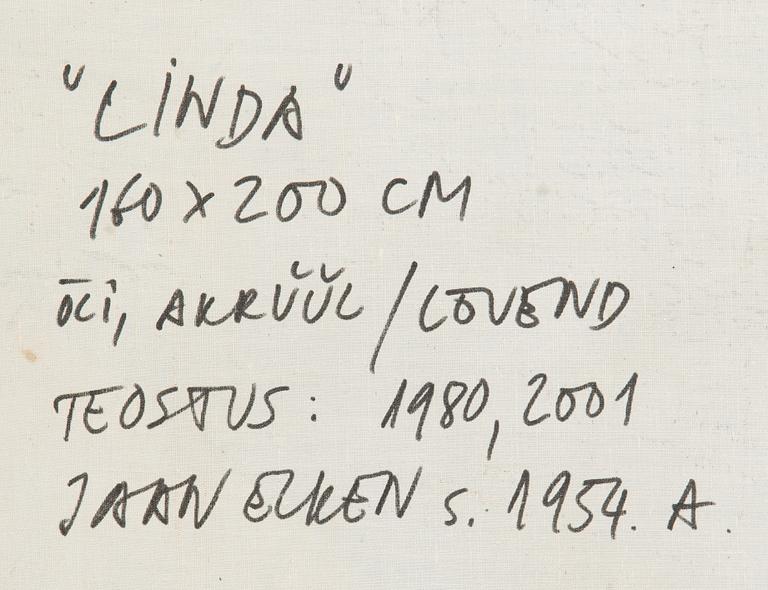 "LINDA"
160 x 200 CM
ÕLI, AKRÜÜL / LÕUEND
TEOSTUS: 1980, 2001
JAAN ELKEN s. 1954. A.